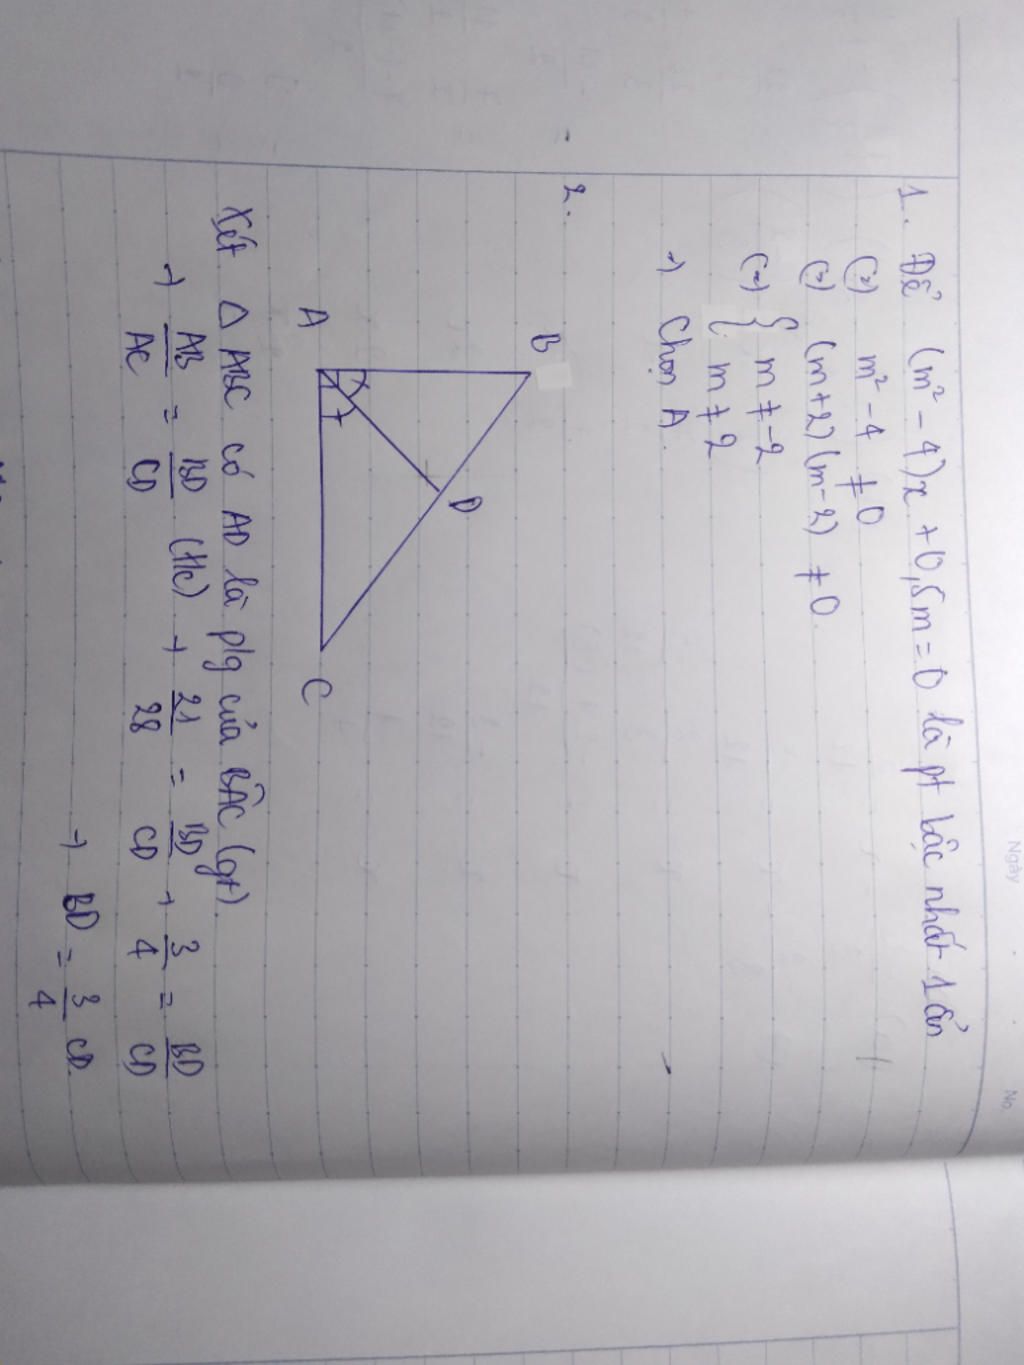 Ngày
No.
1. Để (m² - 4)x + 0,5m = 0 là pt bậc nhất 1 ẩn
(=) m² - 4 ≠ 0
(=) (m+2)(m-2) ≠ 0.
(=) { m ≠ -2
{ m ≠ 2
→ Chọn A.
2.
B
D
A
C
Xét Δ ABC có AD là p/g của BÂC (gt).
→ AB/AC = BD/CD (t/c) → 21/28 = BD/CD → 3/4 = BD/CD
→ BD = 3/4 CD.